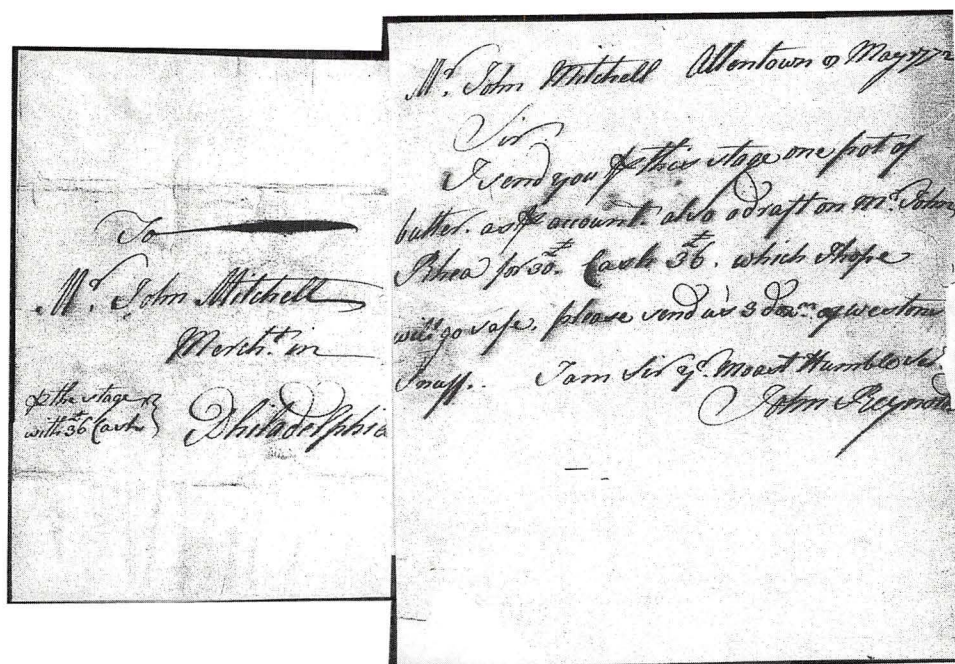 To
Mr. John Mitchell
Mercht. in
Philadelphia
⅌ the stage
with 36 Cash
Mr. John Mitchell Allentown May 1772
Sir
I send you ⅌ this stage one pot of
butter. as ⅌ account. also a draft on Mr. John
Rhea for 30. Cash 36. which I hope
will go safe. please send us 3 dozn. of westons
Snuff. I am Sir yr. Moast Humble Ser.
John Reynolds